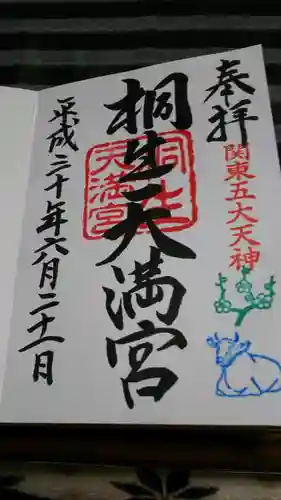 奉拝
関東五大天神
桐生天満宮
桐生
天満宮
平成三十年六月二十一日